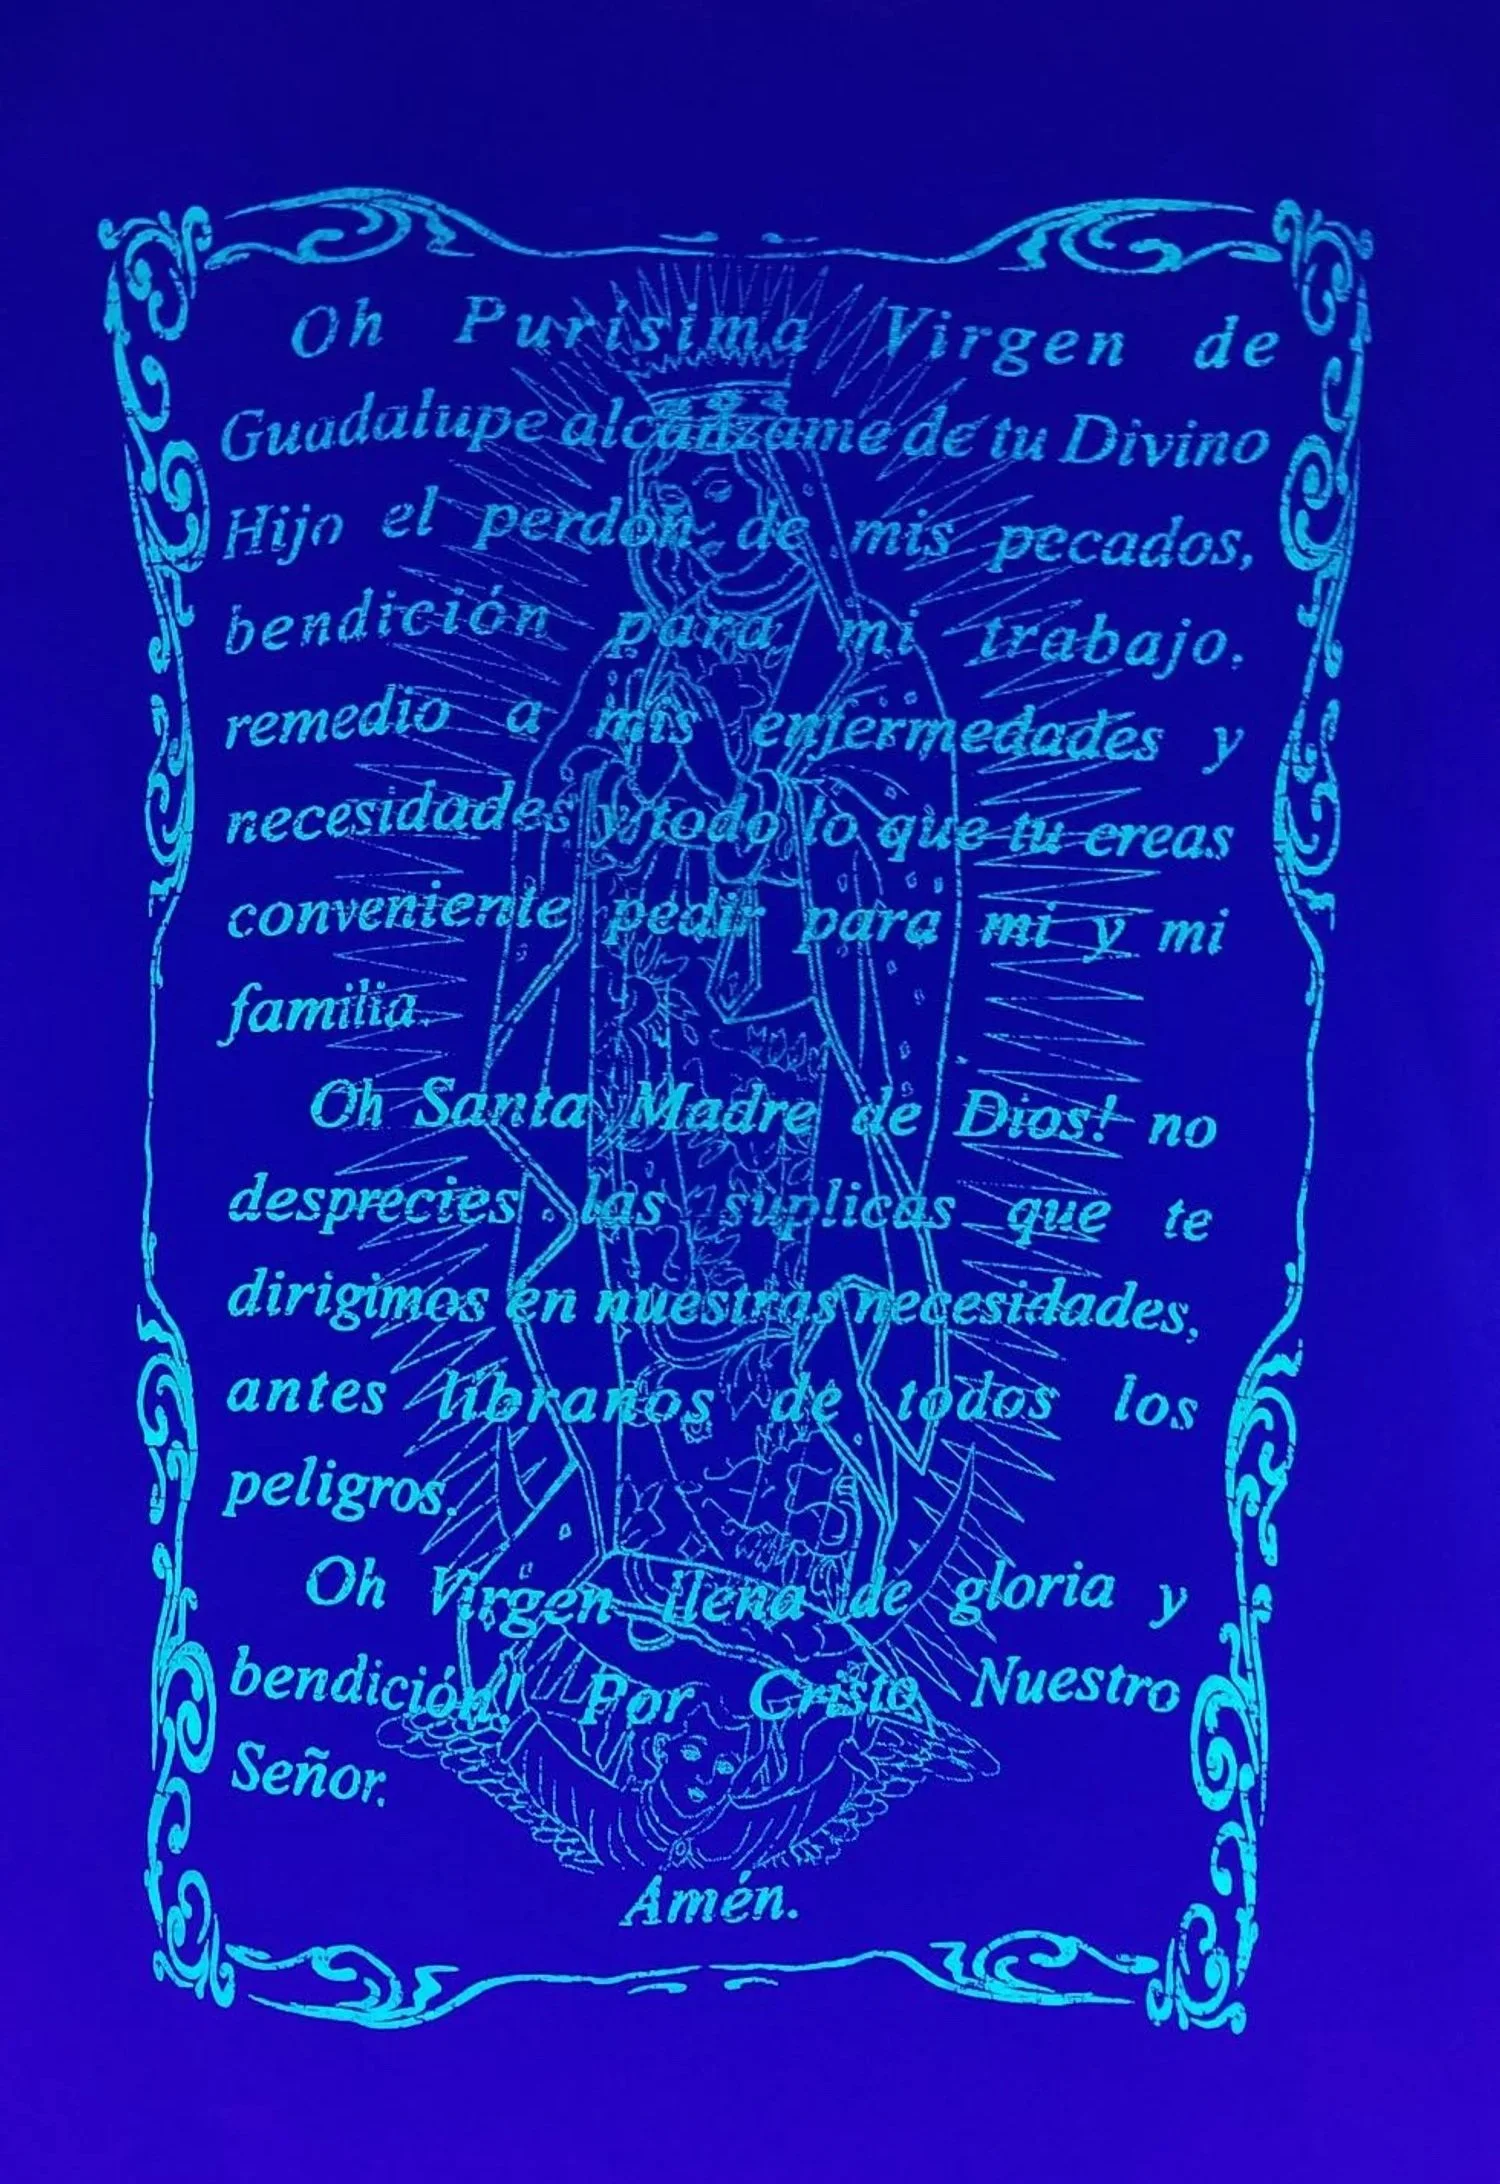 Oh Purísima Virgen de
Guadalupe alcánzame de tu Divino
Hijo el perdón de mis pecados,
bendición para mi trabajo,
remedio a mis enfermedades y
necesidades y todo lo que tu creas
conveniente pedir para mi y mi
familia.
Oh Santa Madre de Dios! no
desprecies las suplicas que te
dirigimos en nuestras necesidades,
antes líbranos de todos los
peligros.
Oh Virgen llena de gloria y
bendición! Por Cristo Nuestro
Señor.
Amén.